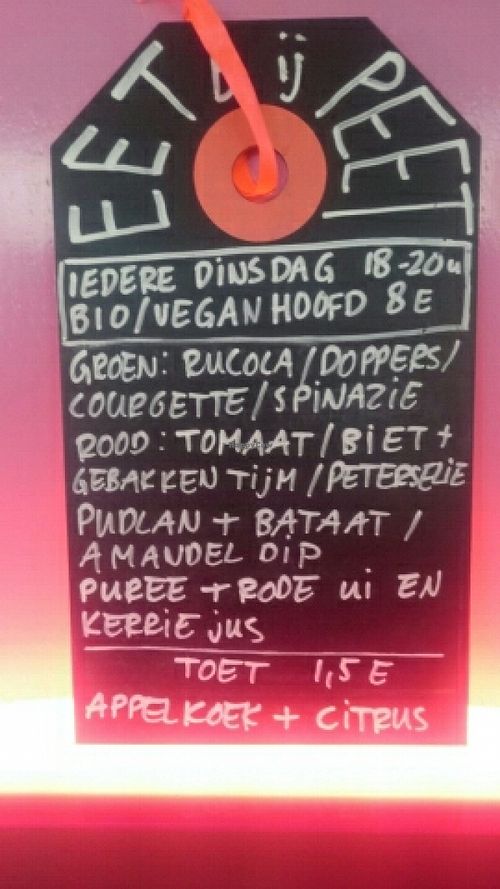 EET bij PEET
IEDERE DINSDAG 18-20u
BIO/VEGAN HOOFD 8E
GROEN: RUCOLA/DOPPERS/
COURGETTE/SPINAZIE
ROOD: TOMAAT/BIET+
GEBAKKEN TIJM/PETERSELIE
PUDLAN + BATAAT /
AMANDEL DIP
PUREE + RODE ui EN
KERRIE jus
TOET 1,5 E
APPELKOEK + CITRUS